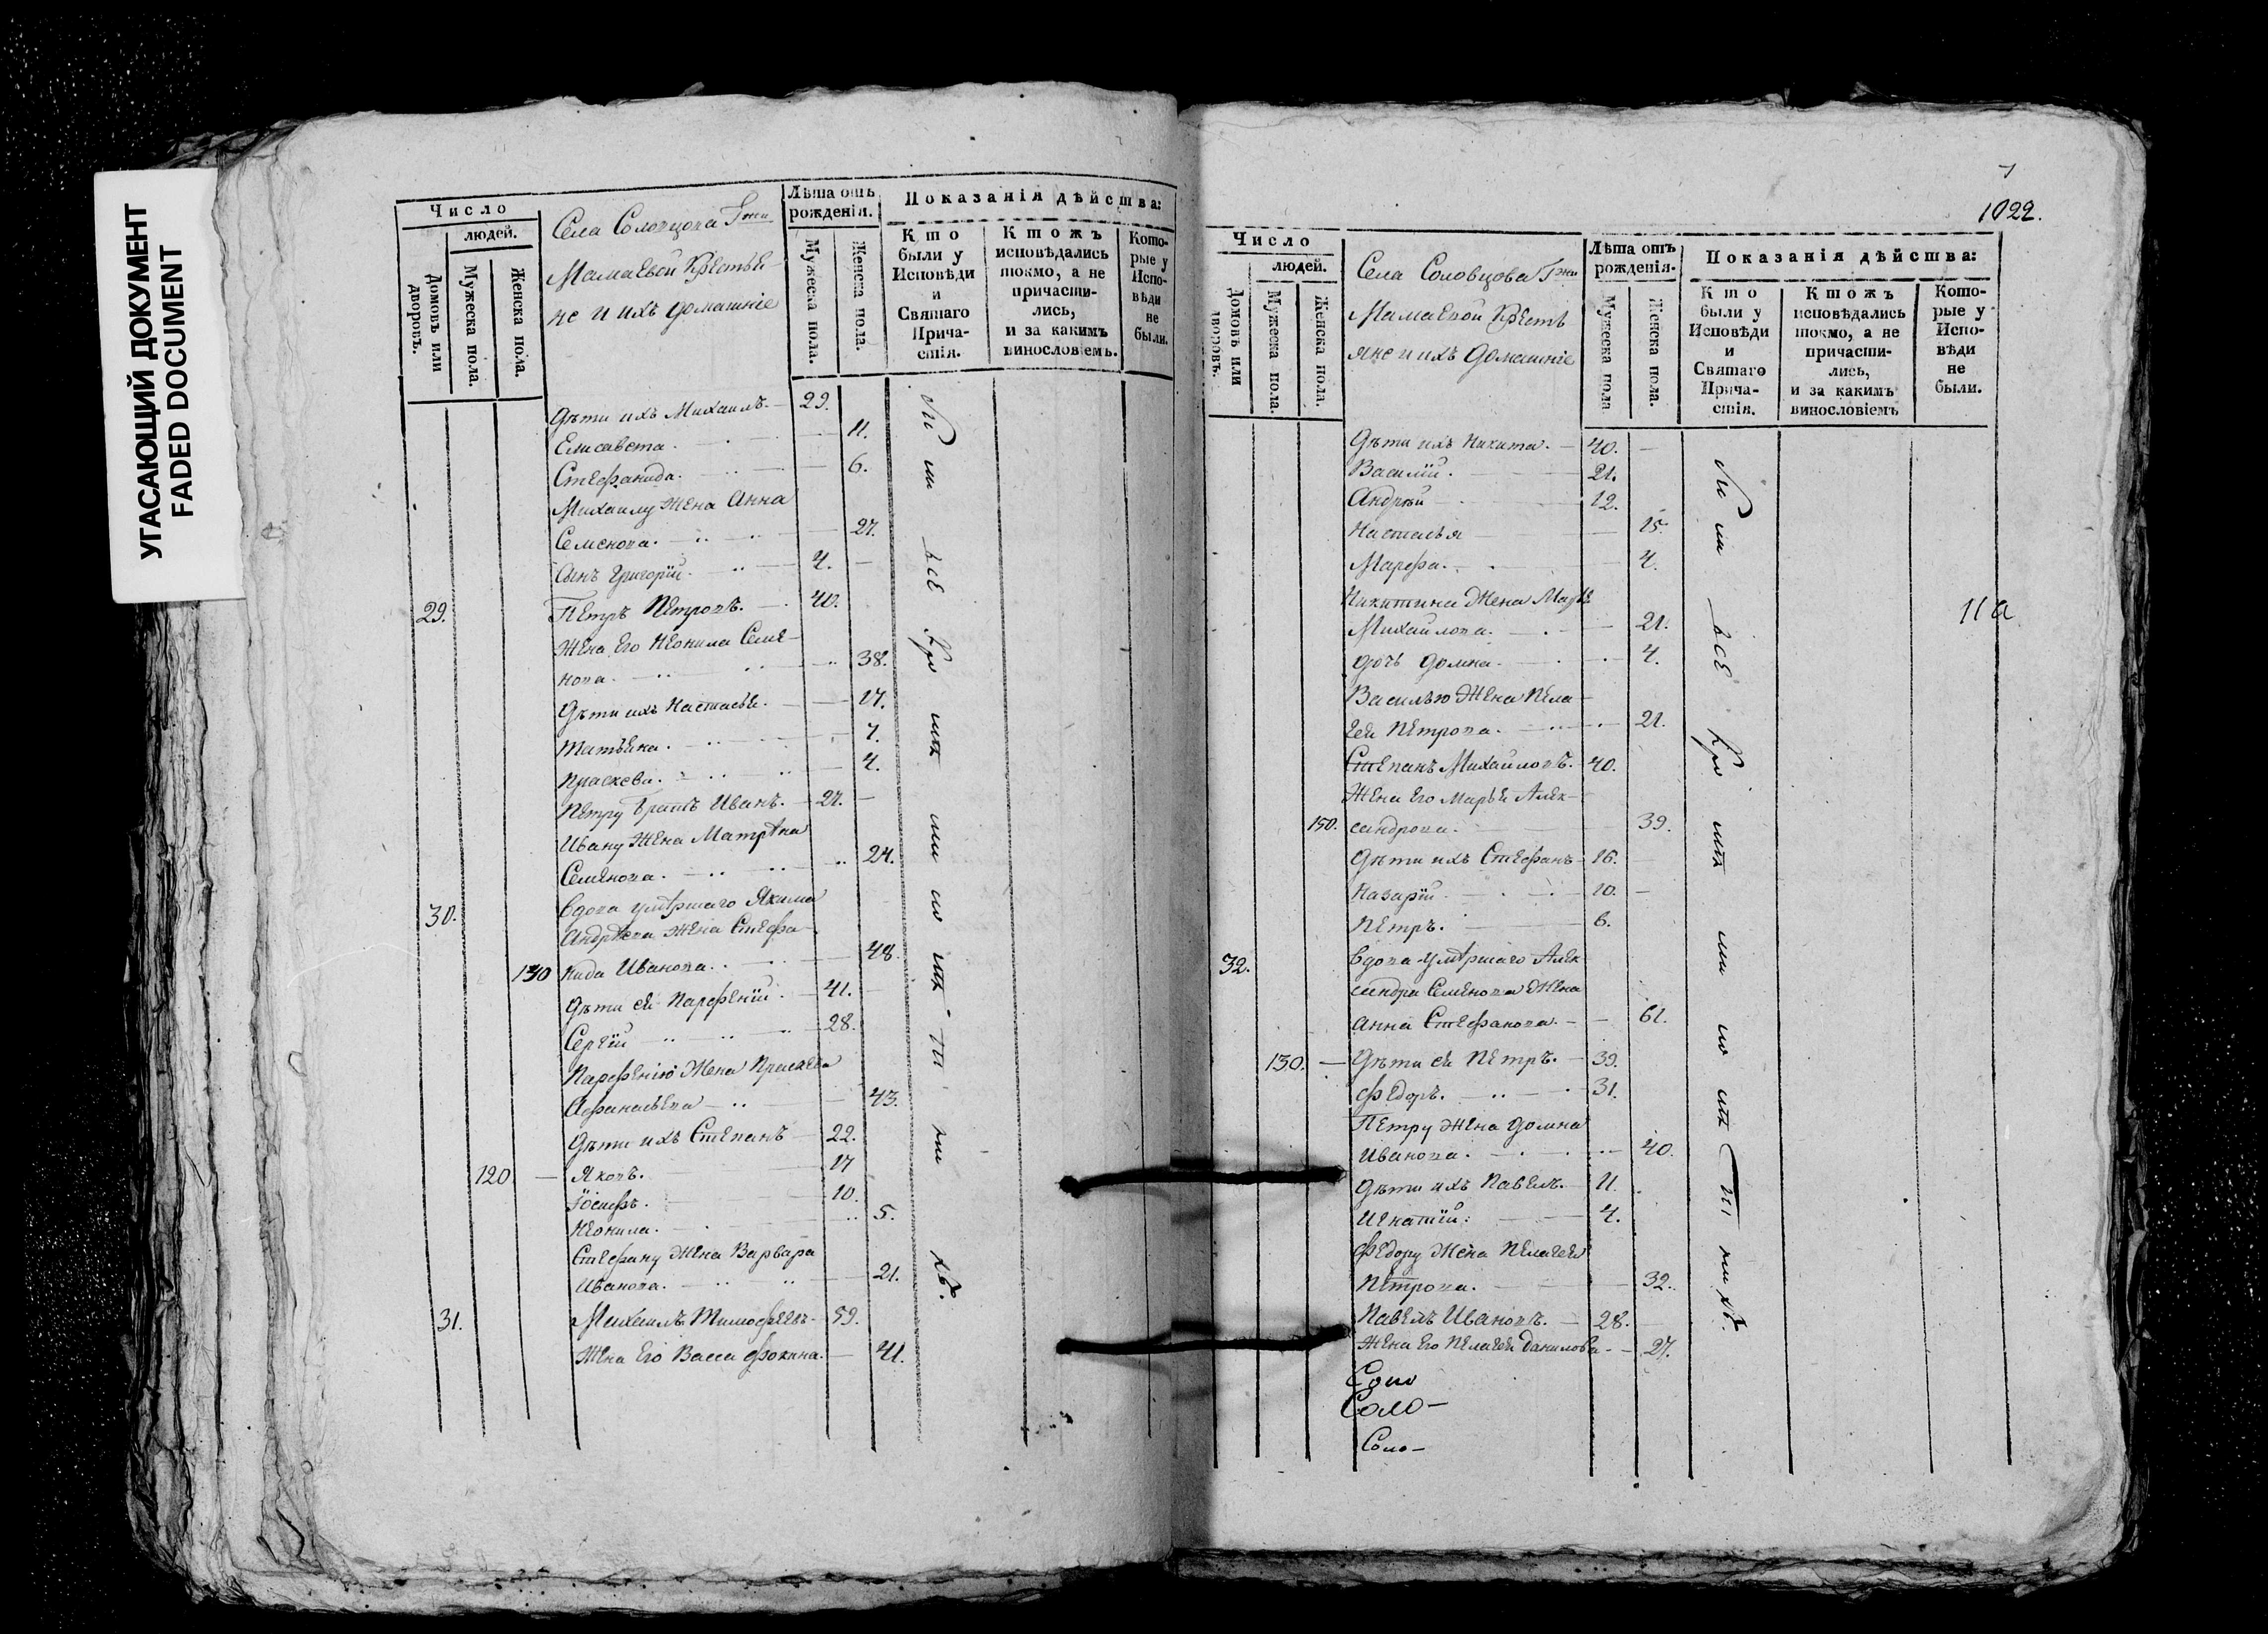 УГАСАЮЩИЙ ДОКУМЕНТ
FADED DOCUMENT
Число
людей.
Домовъ или дворовъ.
Мужеска пола.
Женска пола.
Села Соловцова Гжи
Мамаевой Крестья-
не и ихъ домашніе
Лѣта отъ рожденія.
Мужеска пола.
Женска пола.
Показанія дѣйства:
Кто были у Исповѣди и Святаго Причастія.
Ктожъ исповѣдались токмо, а не причастились, и за какимъ винословіемъ.
Которые у Исповѣди не были.
Дѣти ихъ Михаилъ. 29.
Елисавета. 11.
Стефанида. 6.
Михаилу Жена Анна
Семенова. 27.
Сынъ Григорій. 4.
29. Петръ Петровъ. 40.
Жена Его Неонила Семе-
нова. 38.
Дѣти ихъ Настасья. 17.
Татьяна. 7.
Праскева. 4.
Петру братъ Иванъ. 27.
Ивану Жена Матрена
Семенова. 24.
30. Вдова умершаго Якима
Андреева Жена Стефа-
130 нида Иванова. 48.
Дѣти ея Парфеній. 41.
Сергій 28.
Парфенію Жена Праскева
Афанасьева 43.
Дѣти ихъ Степанъ 22.
120 Яковъ. 17
Іосифъ. 10.
Неонила. 5.
Стефану Жена Варвара
Иванова. 21.
31. Михаилъ Тимофеевъ. 59.
Жена Его Васса Фокина. 41.
1022.
Число
людей.
Домовъ или дворовъ.
Мужеска пола.
Женска пола.
Села Соловцова Гжи
Мамаевой Кресть
яне и ихъ домашніе
Лѣта отъ рожденія.
Мужеска пола
Женска пола.
Показанія дѣйства:
Кто были у Исповѣди и Святаго Причастія.
Ктожъ исповѣдались токмо, а не причастились, и за какимъ винословіемъ
Которые у Исповѣди не были.
Дѣти ихъ Никита. 40.
Василій. 21.
Андрей 12.
Настасья 15.
Марфа. 4.
Никитина Жена
Михайлова. 21.
дочь Домна. 4.
Василью Жена Пела-
гея Петрова. 21.
Степанъ Михайловъ. 40.
Жена Его Марья Алек-
150. сандрова. 39.
Дѣти ихъ Стефанъ 16.
Назарій. 10.
Петръ. 6.
32. Вдова умершаго Алек
сандра Семенова Жена
Анна Стефанова. 61.
130. Дѣти ея Петръ. 39.
Федоръ. 31.
Петру Жена Домна
Иванова. 40.
Дѣти ихъ Павелъ. 11.
Игнатій: 4.
Федору Жена Пелагея
Петрова. 32.
Павелъ Ивановъ. 28.
Жена Его Пелагея Данилова 27.
Соло-
11а